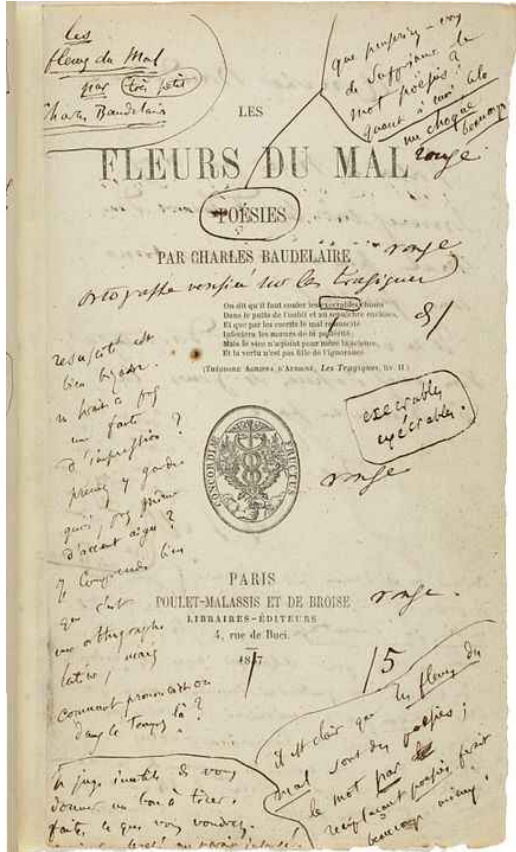 les
fleurs du Mal
par très petit
Charles Baudelaire
que penseriez-vous
de supprimer le
mot poésies ?
quant à moi cela
me choque
beaucoup
LES
FLEURS DU MAL
rouge
POÉSIES
PAR CHARLES BAUDELAIRE
rouge
ortographe versifié sur les tragiques
On dit qu'il faut couler les execrables choses
Dans le puits de l'oubli et au sepulchre encloses,
Et que par les escrits le mal resuscité
Infectera les mœurs de la postérité;
Mais le vice n'a point pour mère la science,
Et la vertu n'est pas fille de l'ignorance
(THÉODORE AGRIPPA D'AUBIGNÉ, Les Tragiques, liv. II.)
resuscité est
bien bizarre.
n'y a pas
une faute
d'impression ?
prenez y garde
quoi, pas même
d'accent aigu ?
Je comprends bien
que c'est
une orthographe
latine, mais
comment prononçait on
dans le temps là ?
execrables
exécrables.
CONCORDIÆ FRUCTUS
rouge
PARIS
POULET-MALASSIS ET DE BROISE
rouge.
LIBRAIRES-ÉDITEURS
4, rue de Buci.
1857
/5
il est clair que les fleurs du
mal sont des poésies ;
le mot par
remplaçant poésies ferait
beaucoup mieux.
Je juge inutile de vous
donner un bon à tirer.
faites ce que vous voudrez.